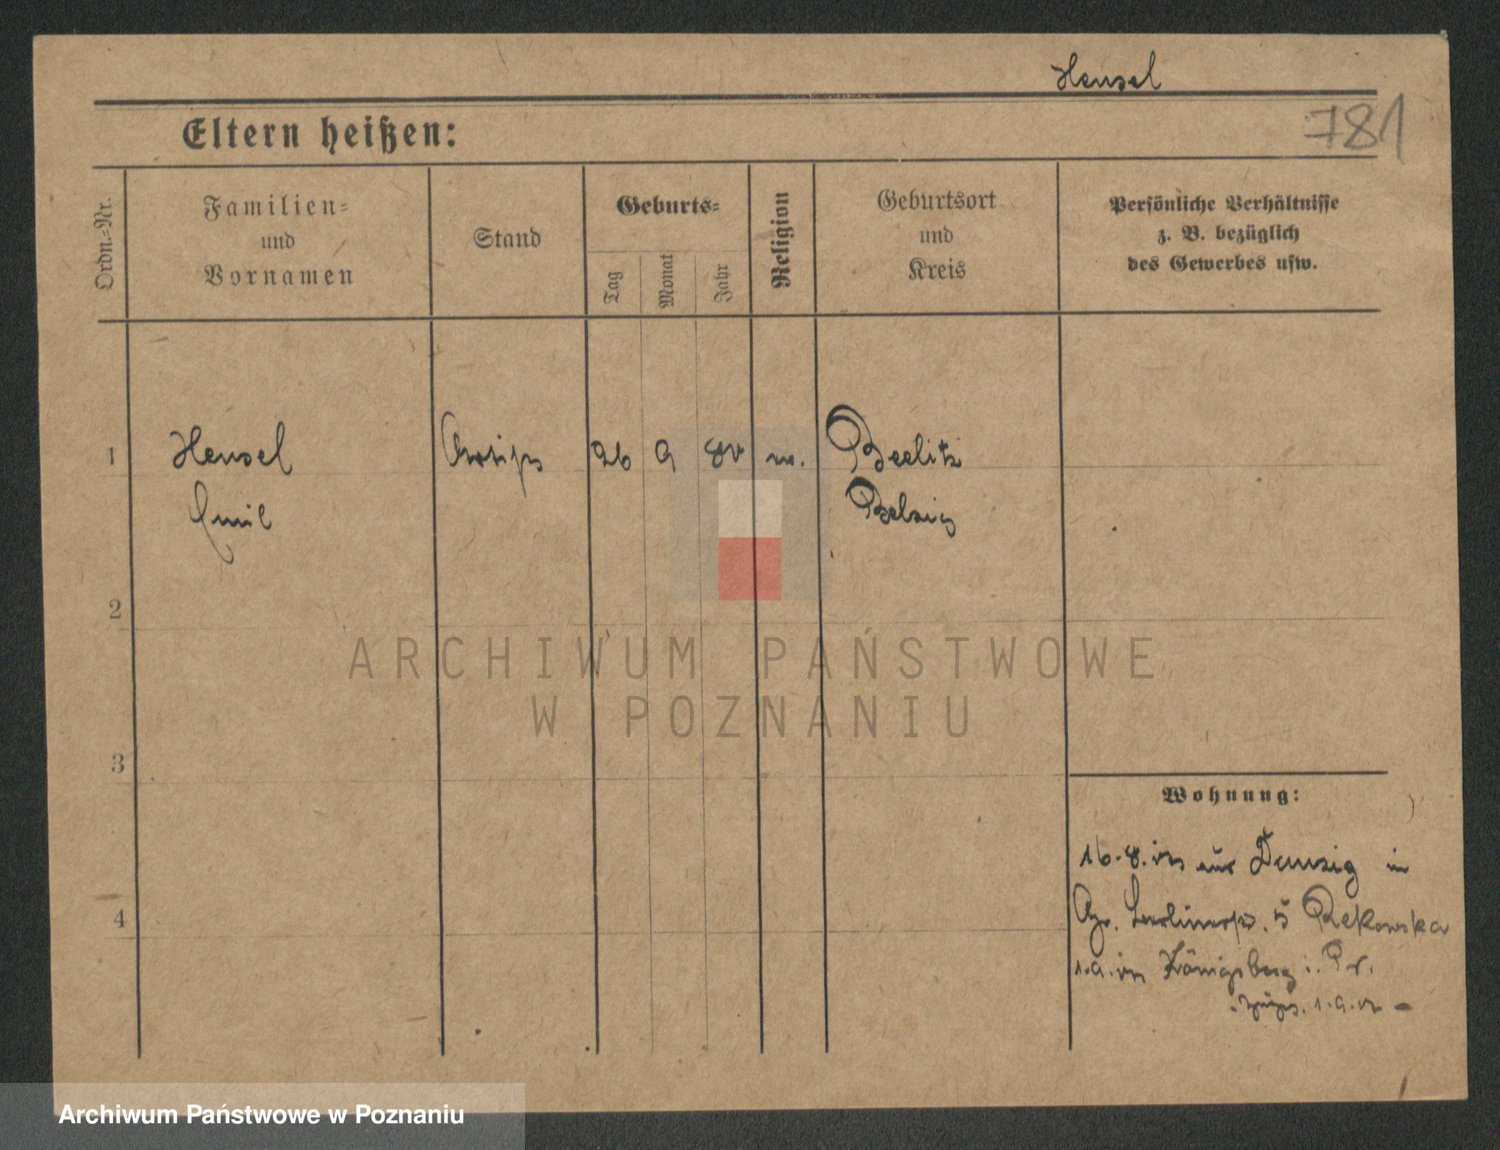 Hensel
781
Eltern heißen:
Ordn.-Nr.
Familien-
und
Vornamen
Stand
Geburts-
Tag
Monat
Jahr
Religion
Geburtsort
und
Kreis
Persönliche Verhältnisse
z. B. bezüglich
des Gewerbes usw.
1 Hensel 26 9 Beelitz
Emil Belzig
2
3
4
Wohnung:
16.8. aus Danzig in
5 Rekowska
1.9. Königsberg i. Pr.
1.9.
ARCHIWUM PAŃSTWOWE
W POZNANIU
Archiwum Państwowe w Poznaniu